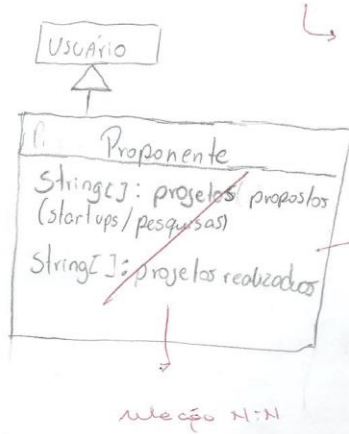 USUÁRIO
Proponente
String[]: projetos propostos
(startups/pesquisas)
String[]: projetos realizados
relação N:N